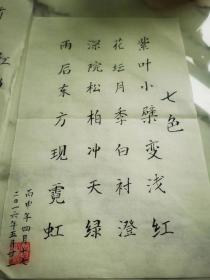 七色
紫叶小檗变浅红
花坛月季白衬澄
深院松柏冲天绿
雨后东方现霓虹
丙申年四月
二〇一六年五月廿